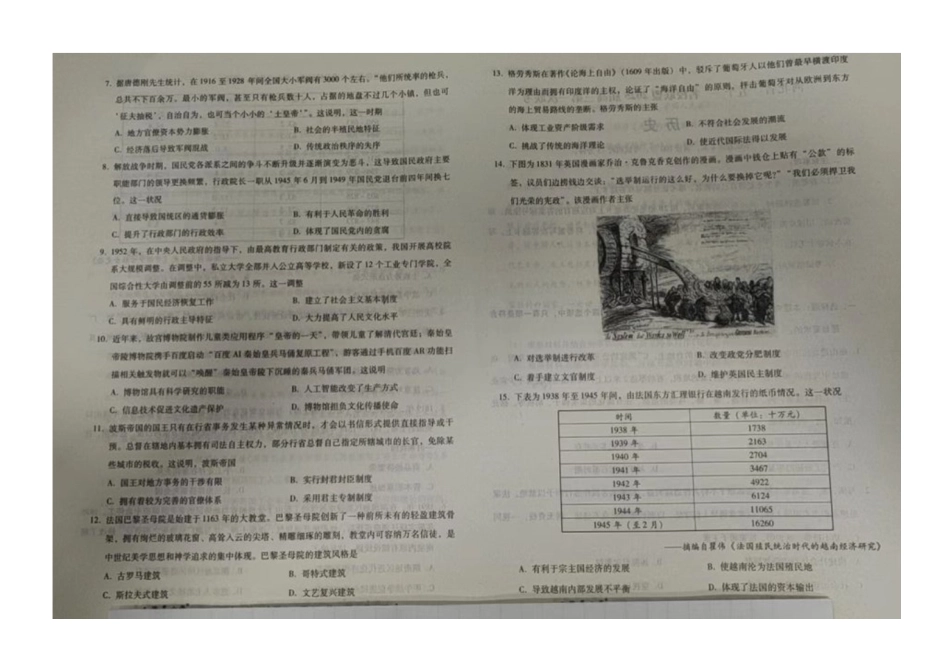 7. 据唐德刚先生统计，在 1916 至 1928 年间全国大小军阀有3000 个左右，“他们所统率的枪兵，
总共不下百余万，最小的军阀，甚至只有枪兵数十人，占据的地盘不过几个小镇，但也可
‘征夫抽税’，自治自为，也可当个小小的‘土皇帝’”。这说明，这一时期
A. 地方官僚资本势力膨胀
B. 社会的半殖民地特征
C. 经济落后导致军阀混战
D. 传统政治秩序的失序
8. 解放战争时期，国民党各派系之间的争斗不断升级并逐渐演变为恶斗，这导致国民政府主要
职能部门的领导更换频繁，行政院长一职从 1945 年 6 月到 1949 年国民党退台前四年间换七
位。这一状况
A. 直接导致国统区的通货膨胀
B. 有利于人民革命的胜利
C. 提升了行政部门的行政效率
D. 体现了国民党内的贪腐
9. 1952 年，在中央人民政府的指导下，由最高教育行政部门制定有关的政策，我国开展高校院
系大规模调整。在调整中，私立大学全部并入公立高等学校，新设了 12 个工业专门学院，全
国综合性大学由调整前的 55 所减为 13 所。这一调整
A. 服务于国民经济恢复工作
B. 建立了社会主义基本制度
C. 具有鲜明的行政主导特征
D. 大力提高了人民文化水平
10. 近年来，故宫博物院制作儿童类应用程序“皇帝的一天”，带领儿童了解清代宫廷；秦始皇
帝陵博物院携手百度启动“百度 AI 秦始皇兵马俑复原工程”，游客通过手机百度 AR 功能扫
描相关触发物就可以“唤醒”秦始皇帝陵下沉睡的秦兵马俑军团。这说明
A. 博物馆具有科学研究的职能
B. 人工智能改变了生产方式
C. 信息技术促进文化遗产保护
D. 博物馆担负文化传播使命
11. 波斯帝国的国王只有在行省事务发生某种异常情况时，才会以书信形式提供直接指导或干
预。总督在辖地内基本拥有司法自主权力，部分行省总督自己指定所辖城市的长官，免除某
些城市的税收。这说明，波斯帝国
A. 国王对地方事务的干涉有限
B. 实行封君封臣制度
C. 拥有着较为完善的官僚体系
D. 采用君主专制制度
12. 法国巴黎圣母院是始建于 1163 年的大教堂。巴黎圣母院创新了一种前所未有的轻盈建筑骨
架，拥有绚烂的玻璃花窗、高耸入云的尖塔、精雕细琢的雕刻，教堂内可容纳万名信徒，是
中世纪美学思想和神学追求的集中体现。巴黎圣母院的建筑风格是
A. 古罗马建筑
B. 哥特式建筑
C. 斯拉夫式建筑
D. 文艺复兴建筑
13. 格劳秀斯在著作《论海上自由》（1609 年出版）中，驳斥了葡萄牙人以他们曾最早横渡印度
洋为理由而拥有印度洋的主权，论证了“海洋自由”的原则，抨击葡萄牙对从欧洲到东方
的海上贸易路线的垄断。格劳秀斯的主张
A. 体现工业资产阶级需求
B. 不符合社会发展的潮流
C. 挑战了传统的海洋理论
D. 使近代国际法得以发展
14. 下图为 1831 年英国漫画家乔治·克鲁克香克创作的漫画。漫画中钱仓上贴有“公款”的标
签，议员们边捞钱边交谈：“选举制运行的这么好，为什么要换掉它呢？”“我们必须捍卫我
们光荣的宪政”。该漫画作者主张
A. 对选举制进行改革
B. 改变政党分肥制度
C. 着手建立文官制度
D. 维护英国民主制度
15. 下表为 1938 年至 1945 年间，由法国东方汇理银行在越南发行的纸币情况。这一状况
时间 数量（单位：十万元）
1938 年 1738
1939 年 2163
1940 年 2704
1941 年 3467
1942 年 4922
1943 年 6124
1944 年 11065
1945 年（至2月） 16260
——摘编自瞿伟《法国殖民统治时代的越南经济研究》
A. 有利于宗主国经济的发展
B. 使越南沦为法国殖民地
C. 导致越南内部发展不平衡
D. 体现了法国的资本输出